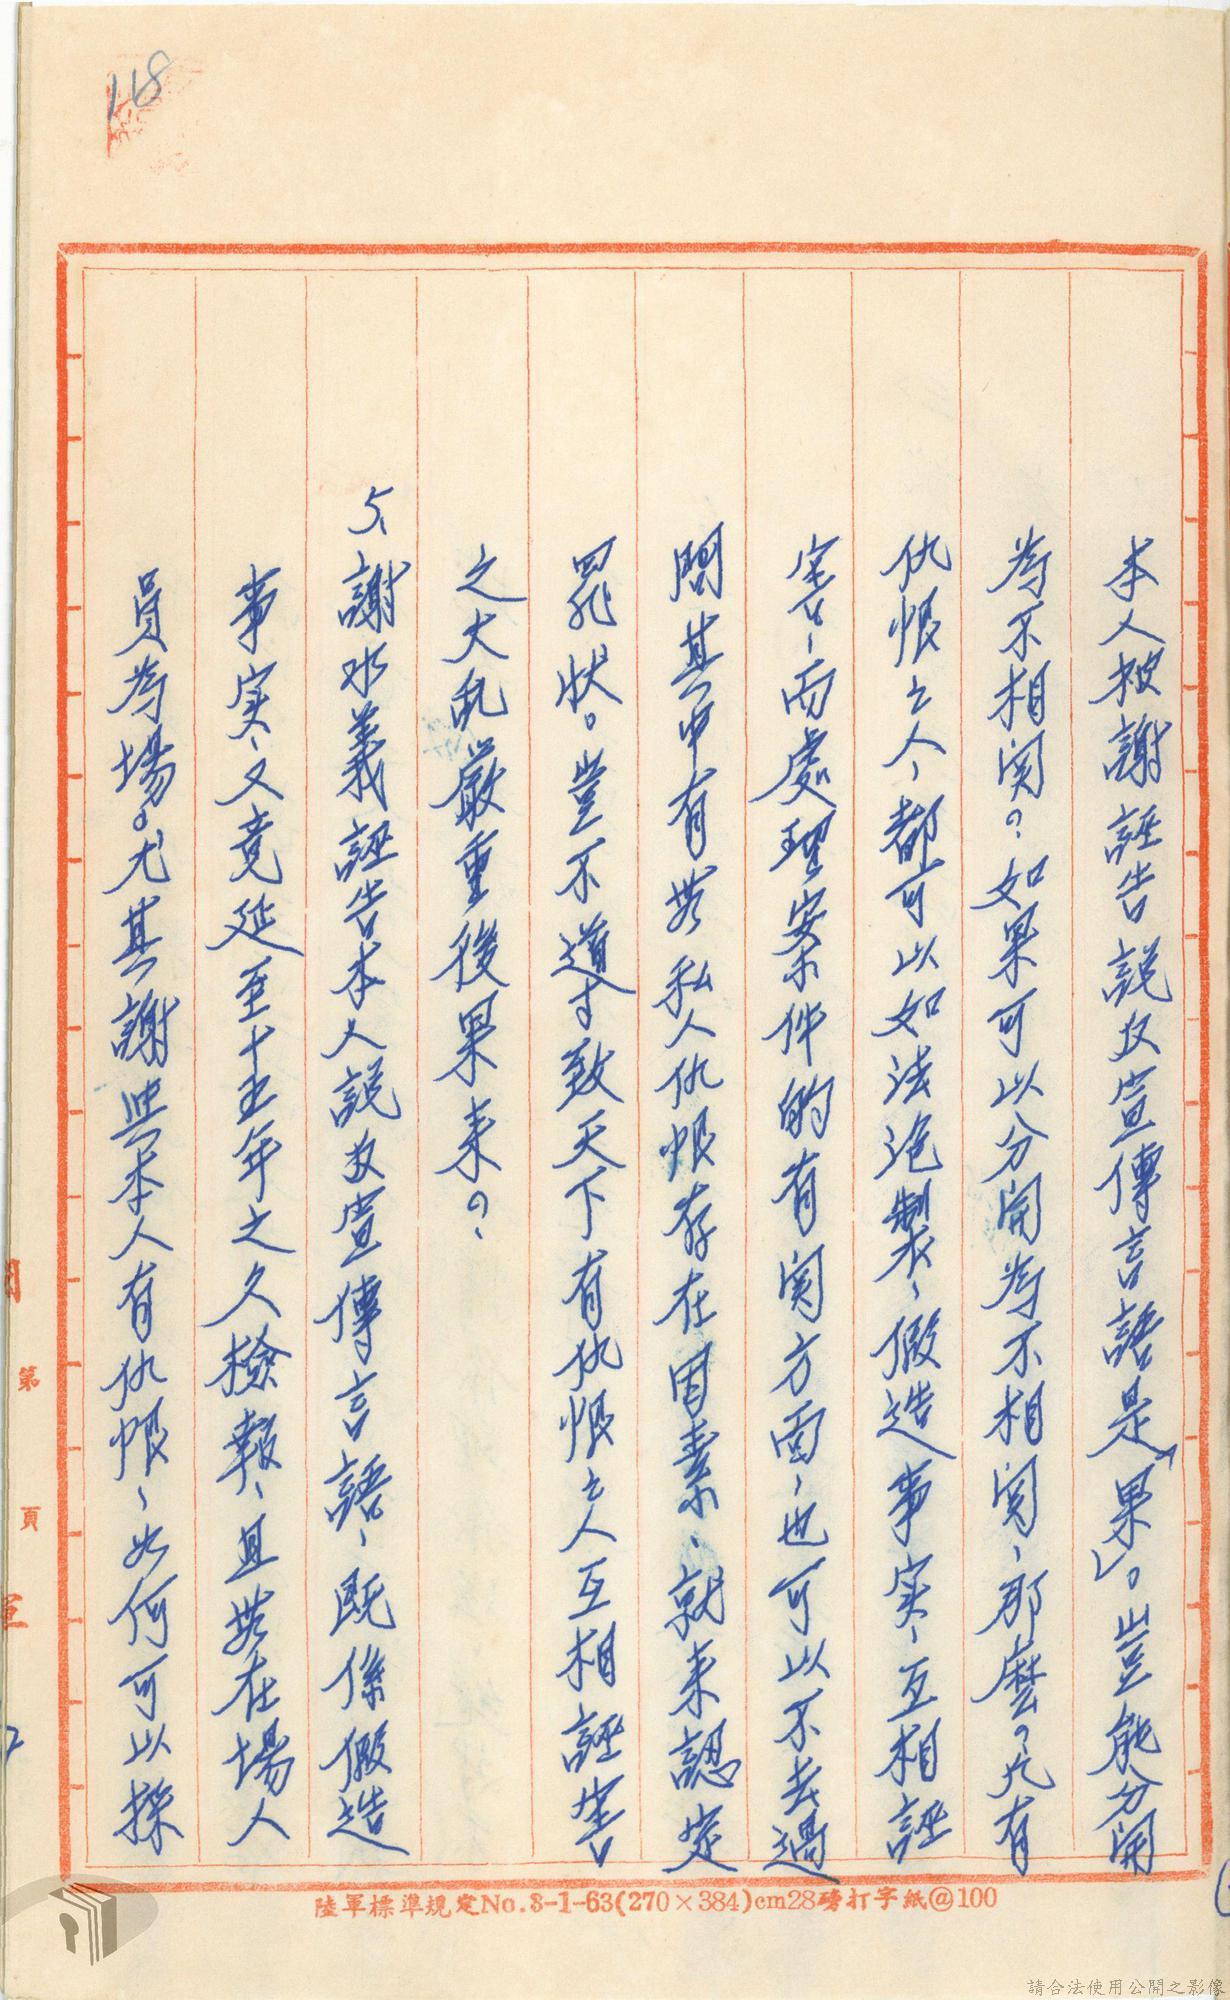 118
本人被謝誣告說反宣傳言語是「果」。豈能分開
為不相関？如果可以分開為不相関，那麼？凡有
仇恨之人，都可以如法泡製，假造事实，互相誣
害，而處理案件的有関方面，也可以不去過
問其中有無私人仇恨存在因素，就来認定
罪状。豈不遺才致天下有仇恨之人互相誣害
之大乱嚴重後果来？
5、謝水義誣告本人說反宣傳言語，既係假造
事实，又竟延至十五年之久撿報，且無在場人
員為場。尤其謝與本人有仇恨，如何可以採
第 頁
陸軍標準規定No.3-1-63(270×384)cm28磅打字紙@100
請合法使用公開之影像